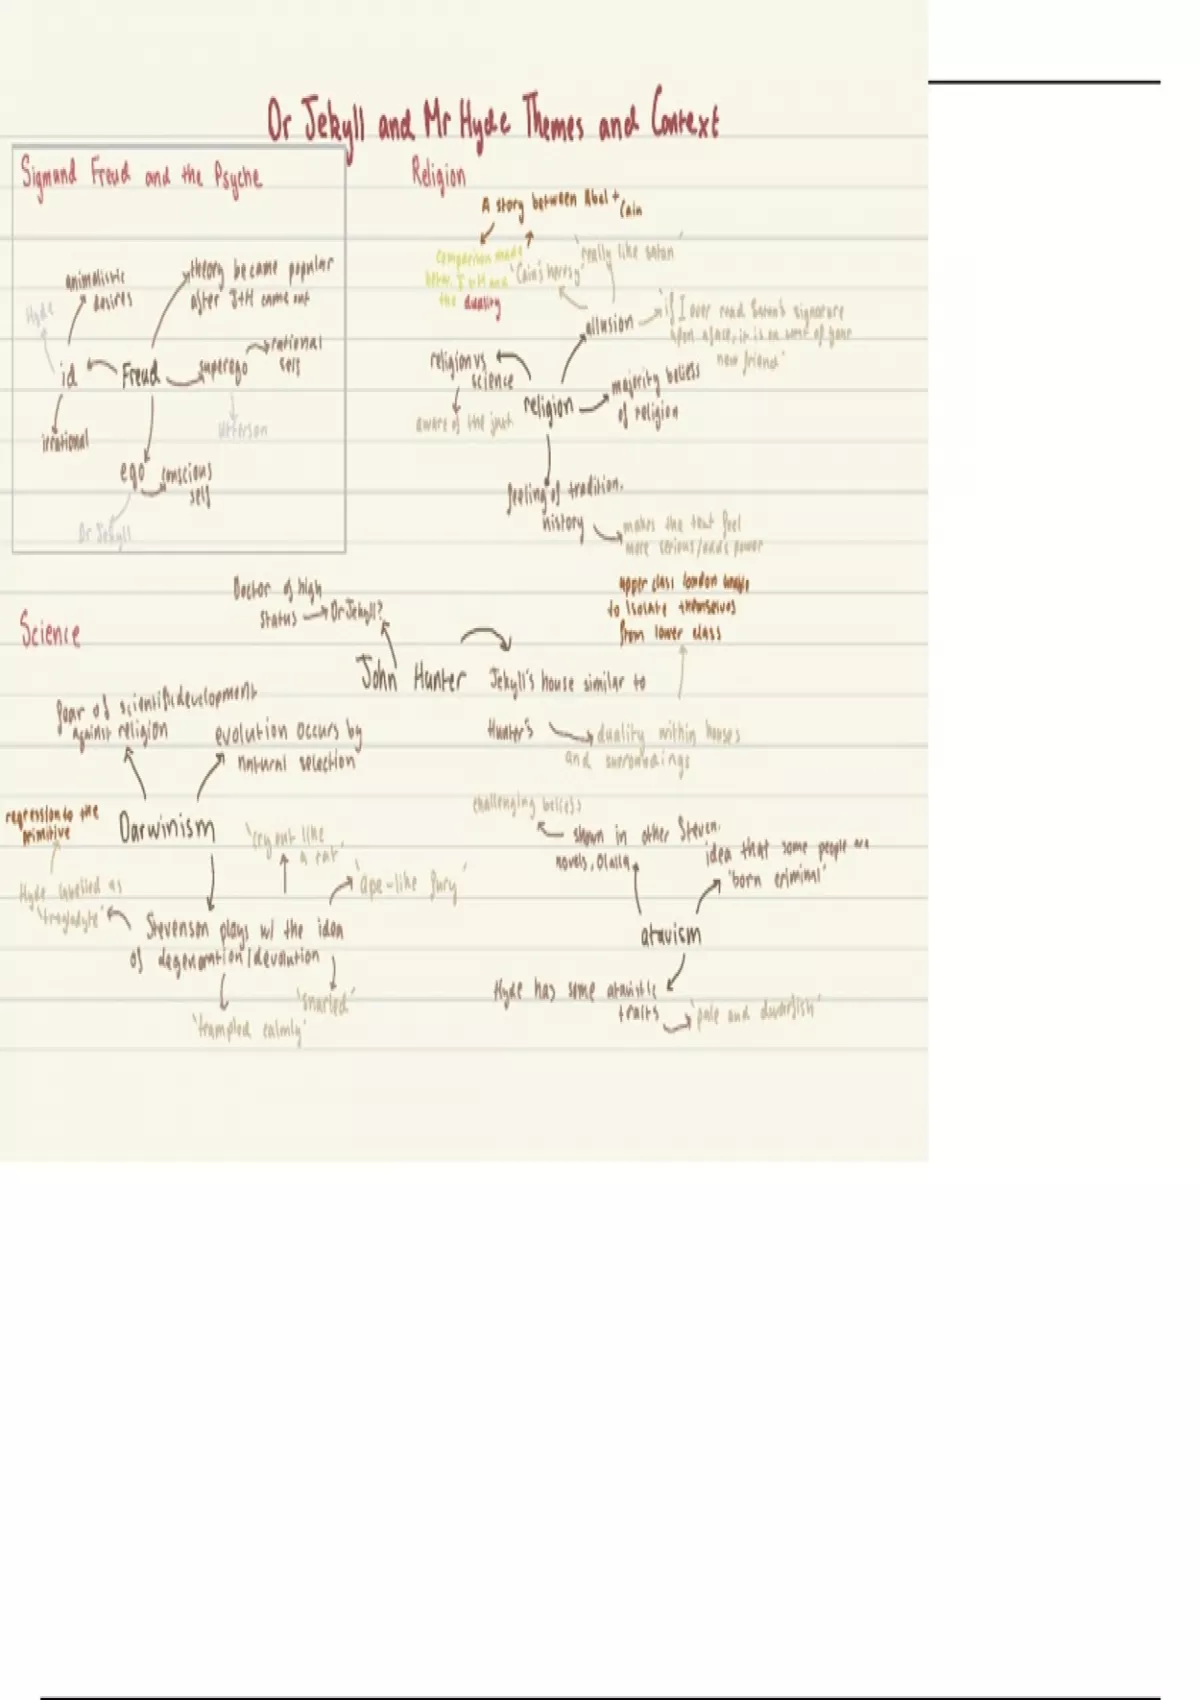 Dr Jekyll and Mr Hyde Themes and Context
Sigmund Freud and the Psyche
animalistic
desires
theory became popular
after J+H came out
Hyde
id
Freud
superego
rational
self
irrational
Utterson
ego
conscious
self
Dr Jekyll
Religion
A story between Abel + Cain
comparison made
betw. J + H and
the duality
'Cain's heresy'
'really like satan'
allusion
'if I ever read Satan's signature
upon a face, it is on that of your
new friend'
religion vs
science
aware of the
religion
majority beliefs
of religion
feeling of tradition.
history
makes the text feel
more serious/adds power
Science
Doctor of high
status
Dr Jekyll?
John Hunter
Jekyll's house similar to
Hunter's
duality within houses
and surroundings
upper class london
to isolate themselves
from lower class
fear of scientific development
against religion
evolution occurs by
natural selection
Darwinism
regression to the
primitive
Hyde labelled as
'troglodyte'
'cry out like
a rat'
'ape-like fury'
Stevenson plays w/ the idea
of degeneration/devolution
'trampled calmly'
'snarled'
challenging beliefs
shown in other Steven.
novels, Olalla
idea that some people are
'born criminal'
atavism
Hyde has some atavistic
traits
'pale and dwarfish'